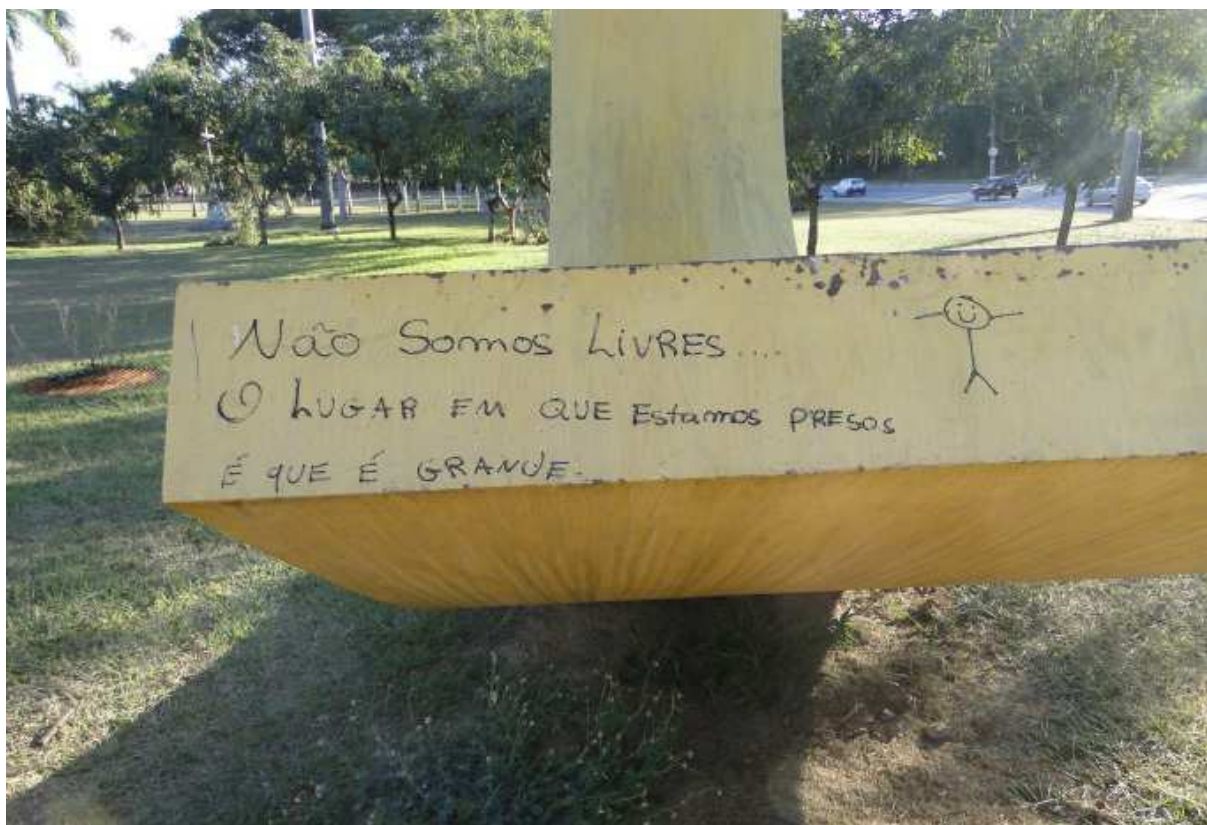 Não Somos LiVRES....
O LUGAR EM QUE Estamos PRESOS
É QUE É GRANDE.